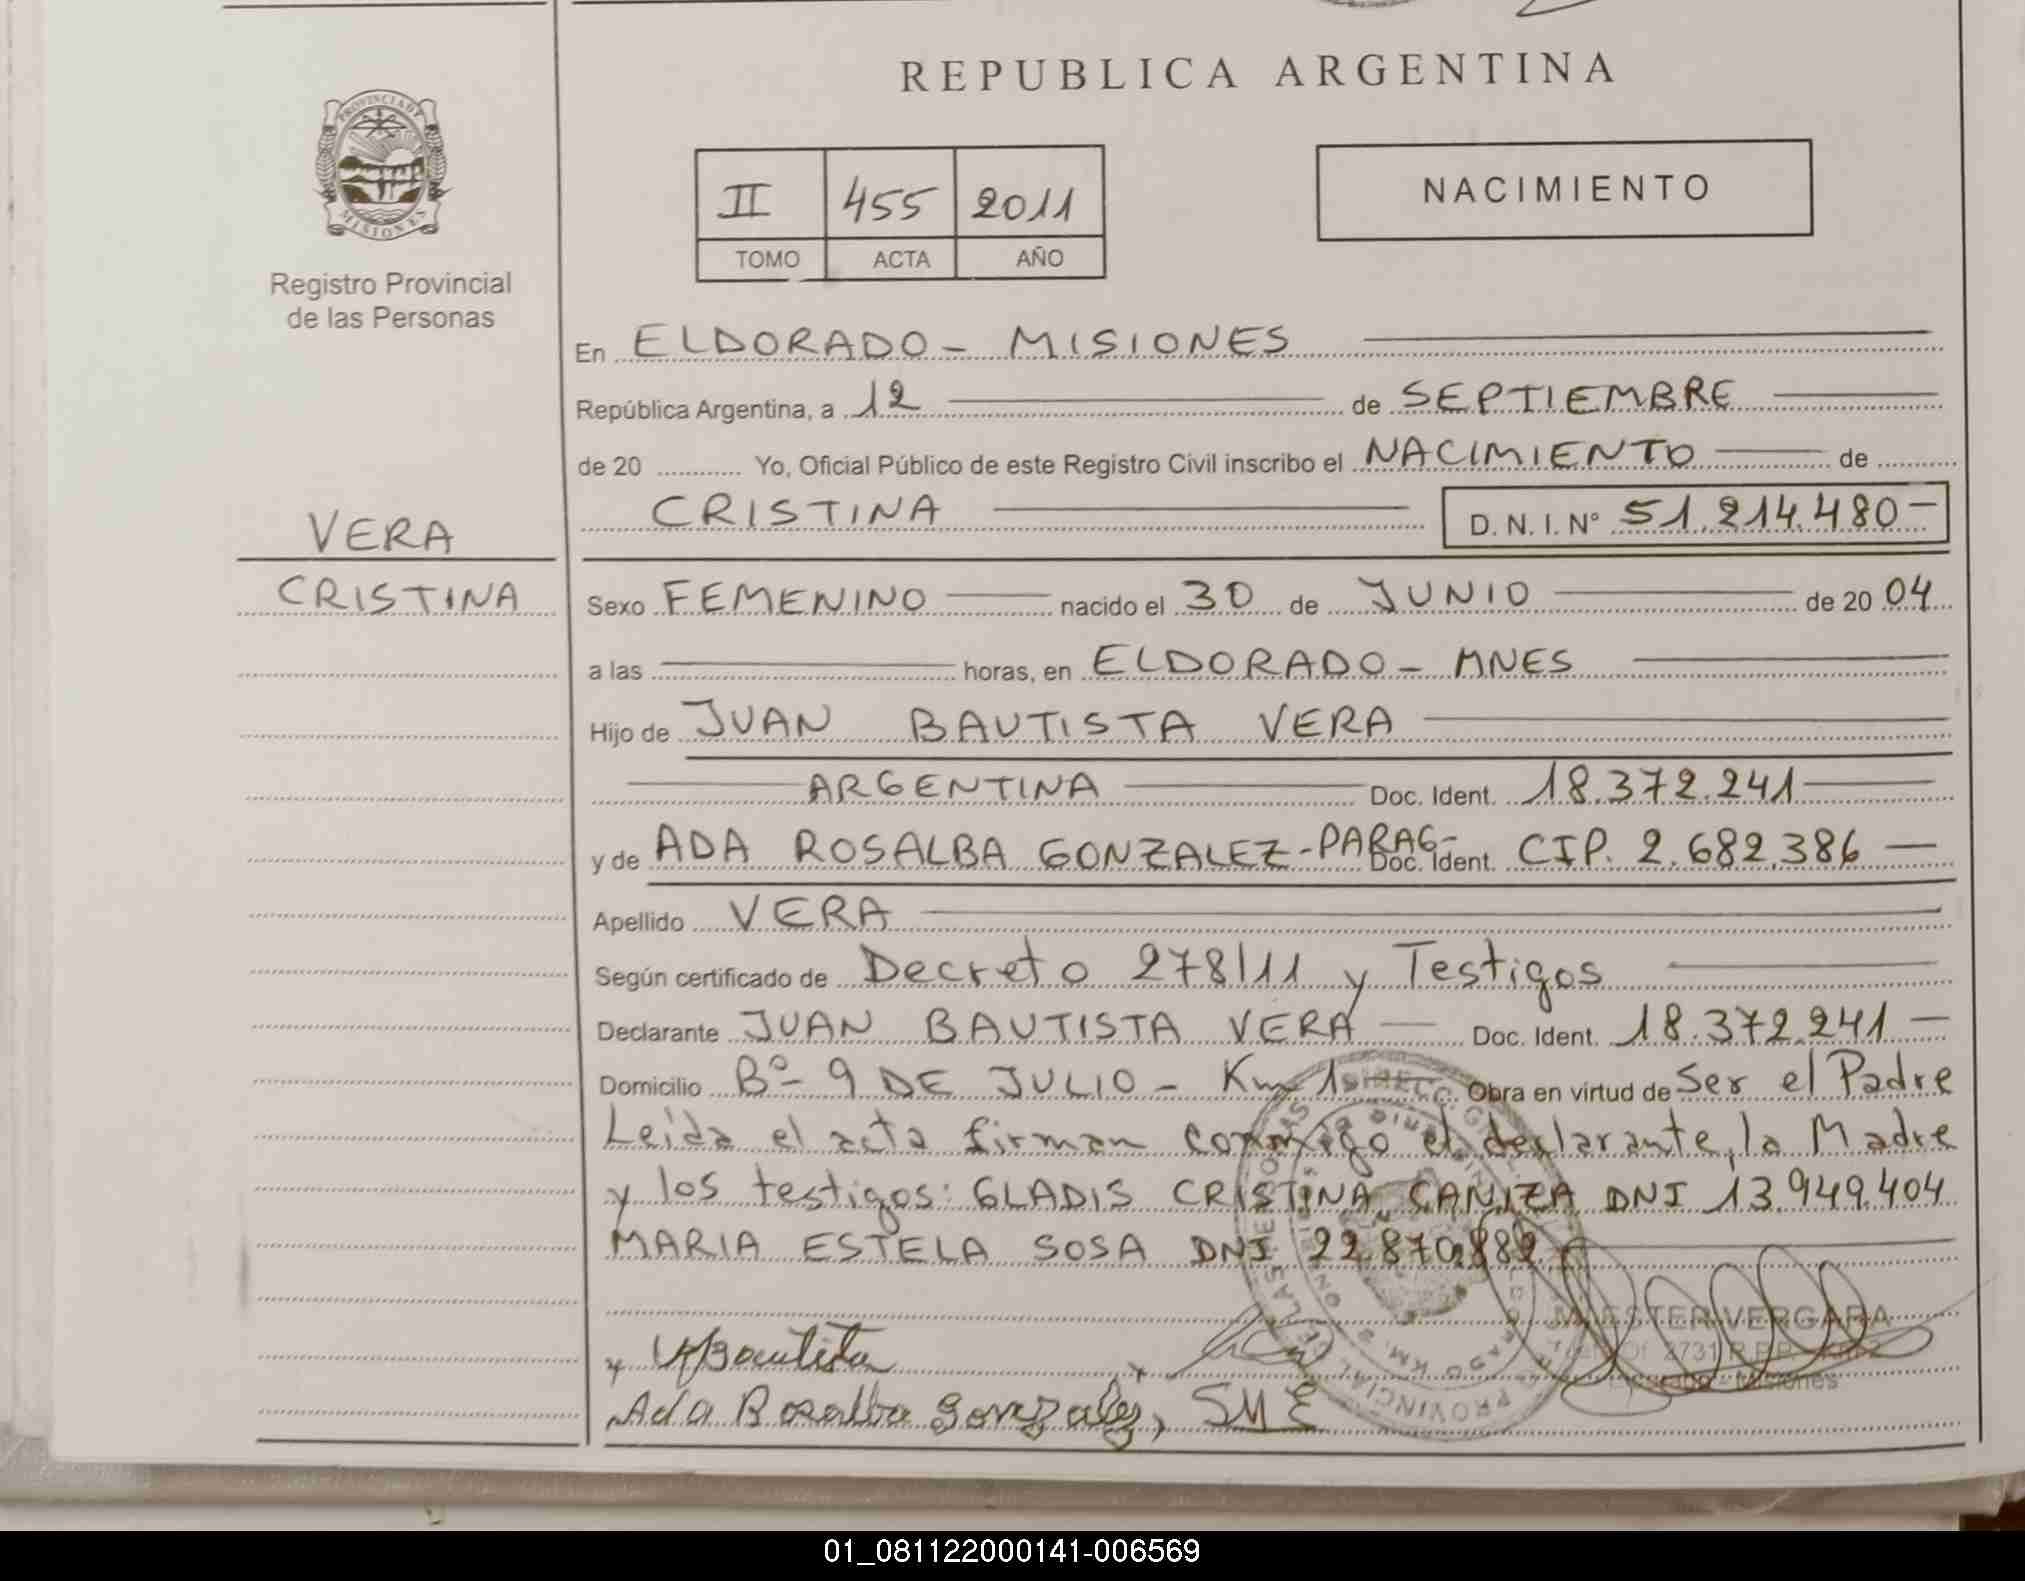 REPUBLICA ARGENTINA
PROVINCIA DE
MISIONES
Registro Provincial
de las Personas
II 455 2011
TOMO ACTA AÑO
NACIMIENTO
En ELDORADO - MISIONES
República Argentina, a 12 de SEPTIEMBRE
de 20 Yo, Oficial Público de este Registro Civil inscribo el NACIMIENTO de
CRISTINA D. N. I. Nº 51.214.480-
VERA
CRISTINA
Sexo FEMENINO nacido el 30 de JUNIO de 20 04
a las horas, en ELDORADO - MNES
Hijo de JUAN BAUTISTA VERA
ARGENTINA Doc. Ident. 18.372.241
y de ADA ROSALBA GONZALEZ-PARAG- Doc. Ident. CIP. 2.682.386
Apellido VERA
Según certificado de Decreto 278/11 y Testigos
Declarante JUAN BAUTISTA VERA Doc. Ident. 18.372.241
Domicilio Bº- 9 DE JULIO - Km 1 Obra en virtud de Ser el Padre
Leida el acta firman conmigo el declarante, la Madre
y los testigos: GLADIS CRISTINA CANIZA DNI 13.949.404
MARIA ESTELA SOSA DNI 22.870.882
ESTER VERGARA
2731 R.P.P.
Misiones
Bautista
Ada Rosalba Gonzalez, SME
01_081122000141-006569